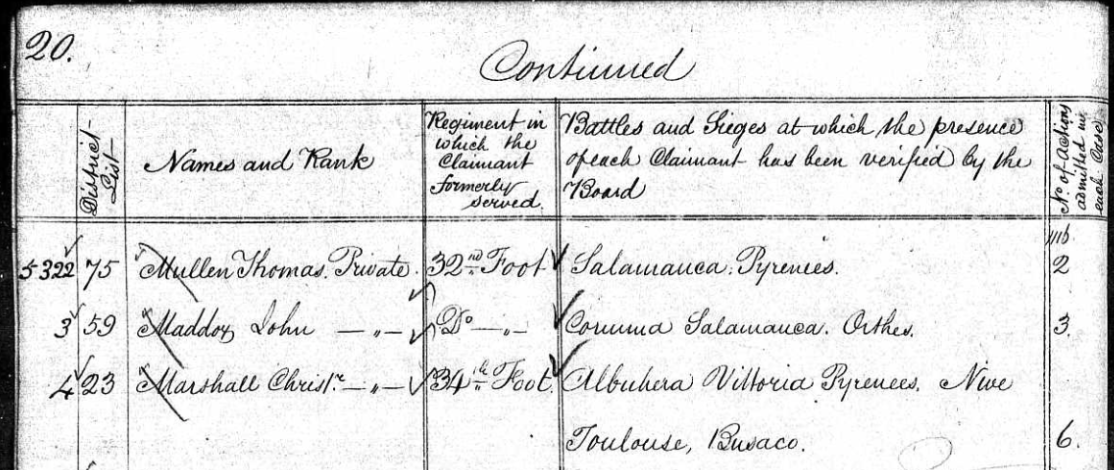 20.
Continued
District List
Names and Rank
Regiment in which the Claimant formerly served.
Battles and Sieges at which the presence
of each Claimant has been verified by the
Board
No. of Actions admitted in each Case
5322 75 Mullen Thomas. Private. 32nd Foot Salamanca. Pyrenees. 2
3 59 Maddox John — " — Do — " — Corunna Salamanca. Orthes. 3
4 23 Marshall Christr. — " — 34th Foot. Albuhera Vittoria Pyrenees. Nive
Toulouse, Busaco. 6.